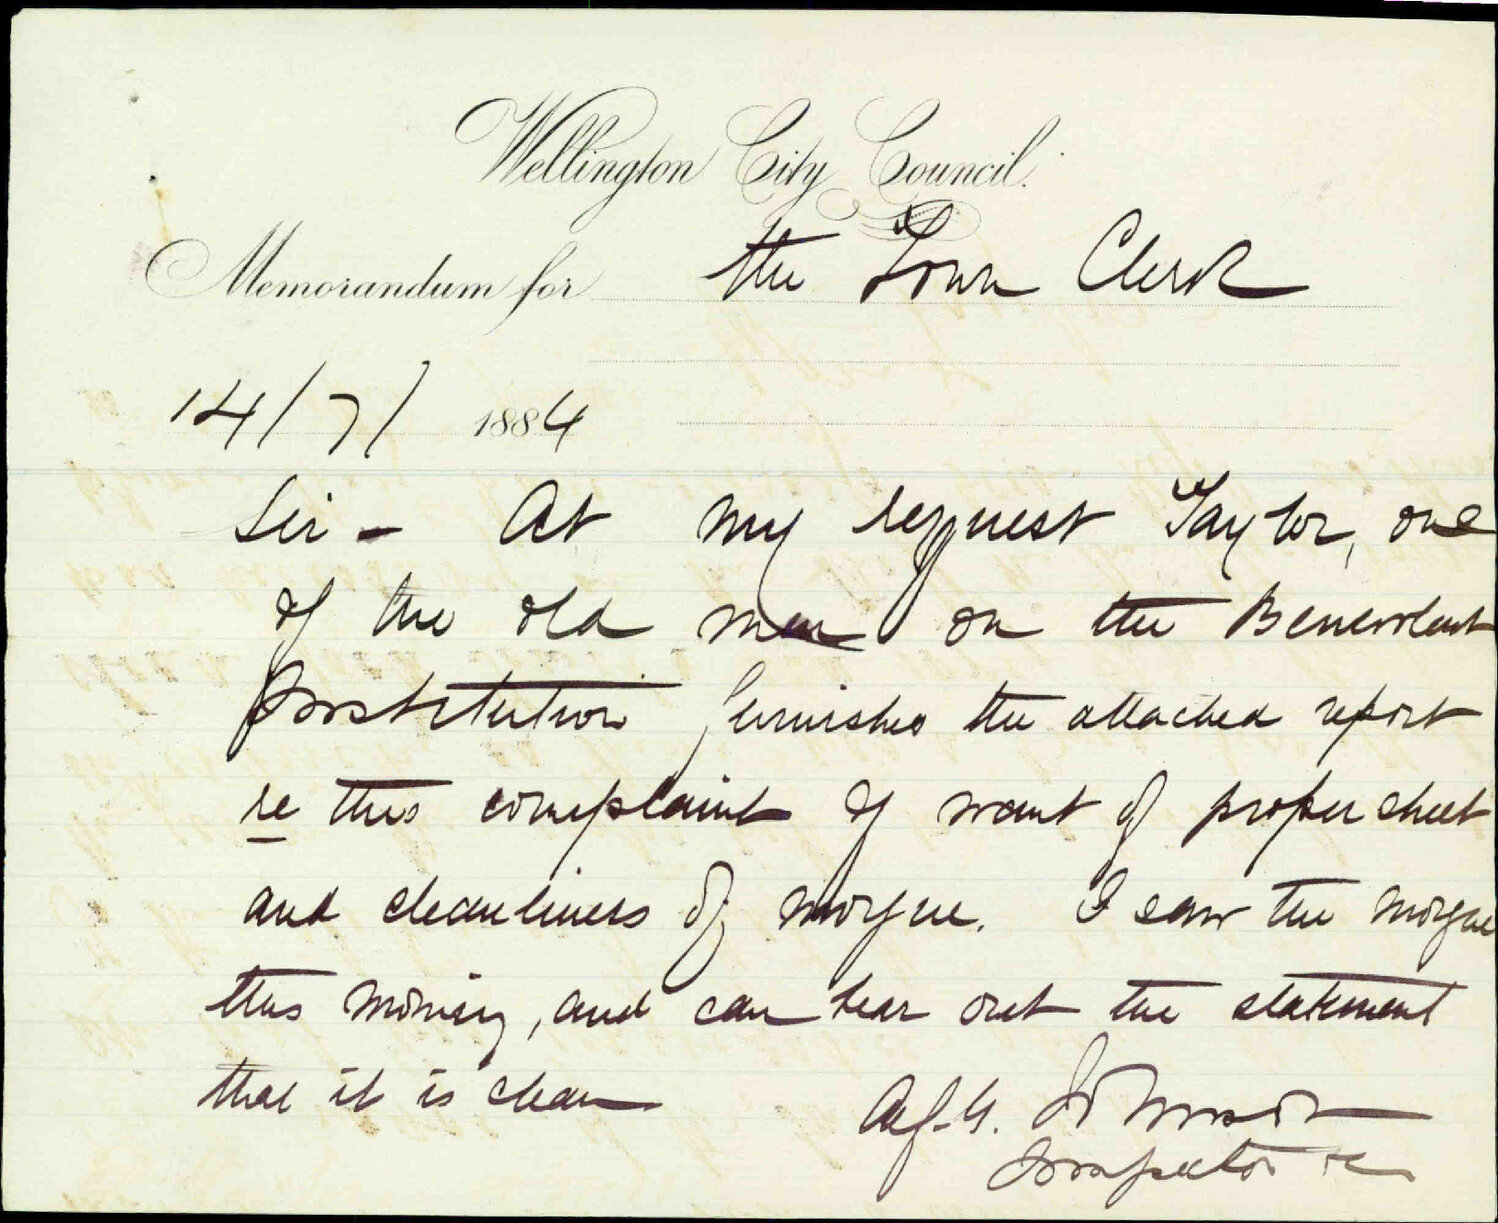 Wellington City Council.
Memorandum for the Town Clerk
14/7/ 1884
Sir - At my request Taylor, one
of the old men on the Benevolent
Institution furnishes the attached report
re this complaint of want of proper sheet
and cleanliness of morgue. I saw the morgue
this morning, and can bear out the statement
that it is clean
Alf. G. Johnson
Inspector &c